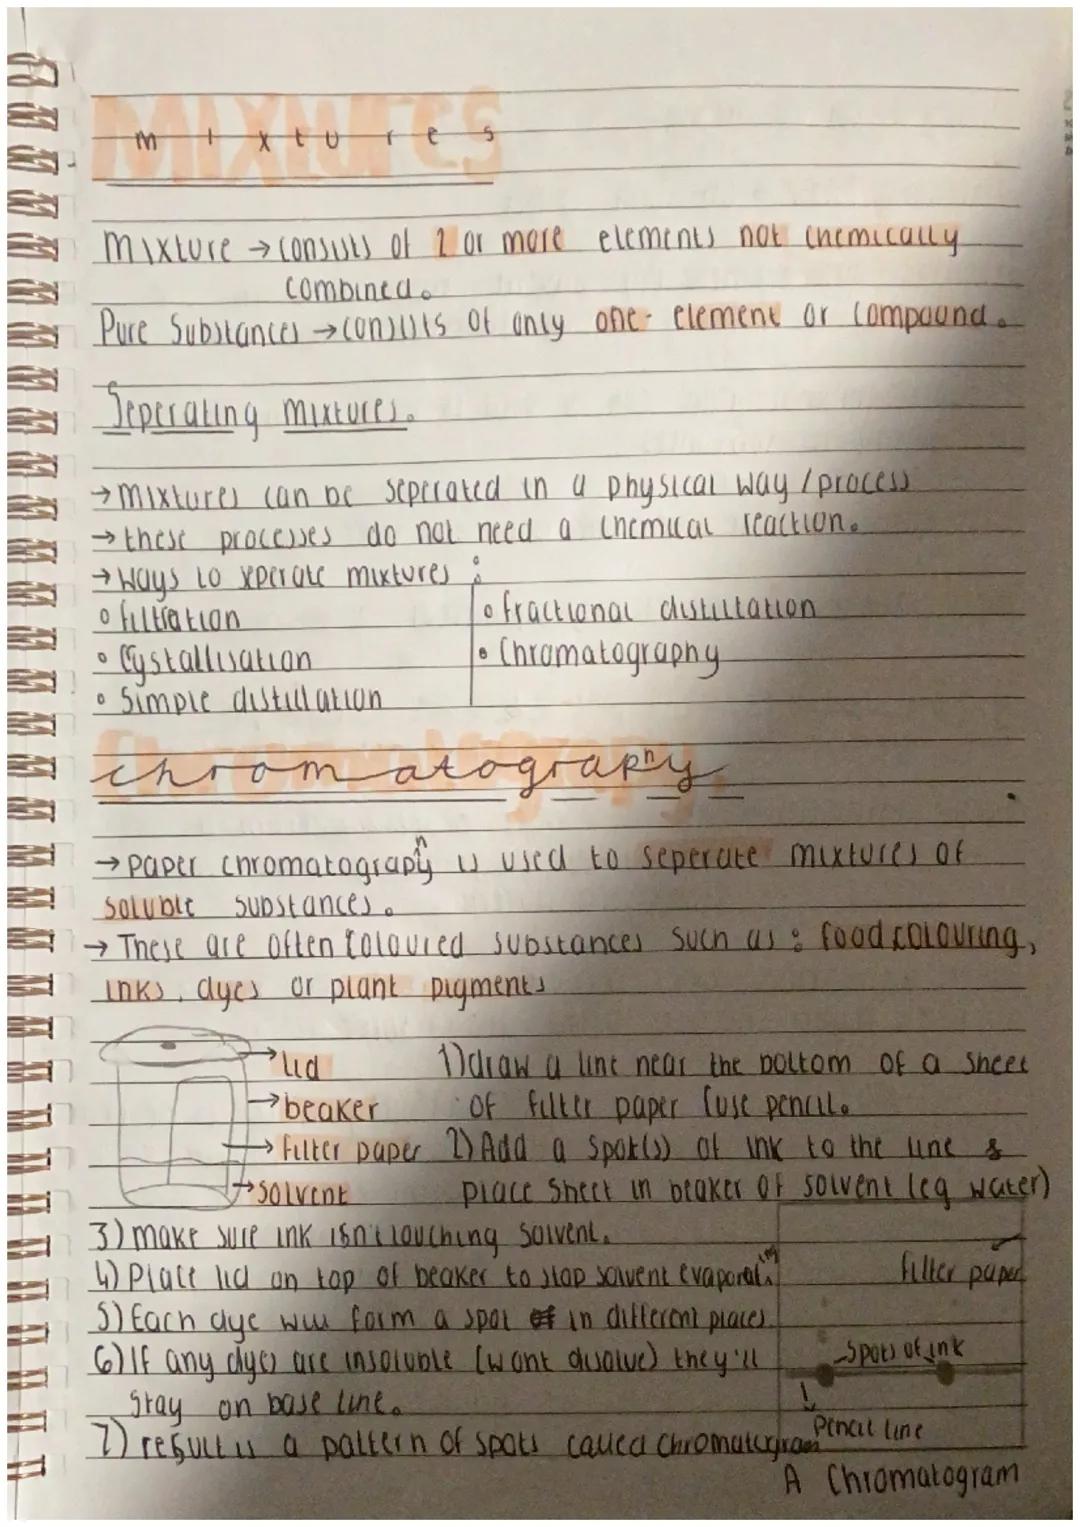 MIXtures
mixtures
Mixture → consists of 2 or more elements not chemically
combined.
Pure Substances → consists of only one element or compound.
Seperating mixtures.
→ mixtures can be seperated in a physical way / process
→ these processes do not need a chemical reaction.
→ ways to seperate mixtures :
• filtration
• Cystallisation
• Simple distillation
• fractional distillation
• Chromatography
Chromatography.
chromatography
→ paper chromatography is used to seperate mixtures of
soluble substances.
→ These are often coloured substances such as : food colouring,
inks, dyes or plant pigments
→ lid
→ beaker
→ filter paper
→ solvent
1) draw a line near the bottom of a sheet
of filter paper (use pencil.
2) Add a spot(s) of ink to the line &
place sheet in beaker of solvent (eg water)
3) make sure ink isn't touching solvent.
4) Place lid on top of beaker to stop solvent evaporating
5) Each dye will form a spot of in different places.
6) If any dyes are insoluble (wont disolve) they'll
stay on base line.
7) result is a pattern of spots called chromatogram
filter paper
spots of ink
Pencil line
A Chromatogram